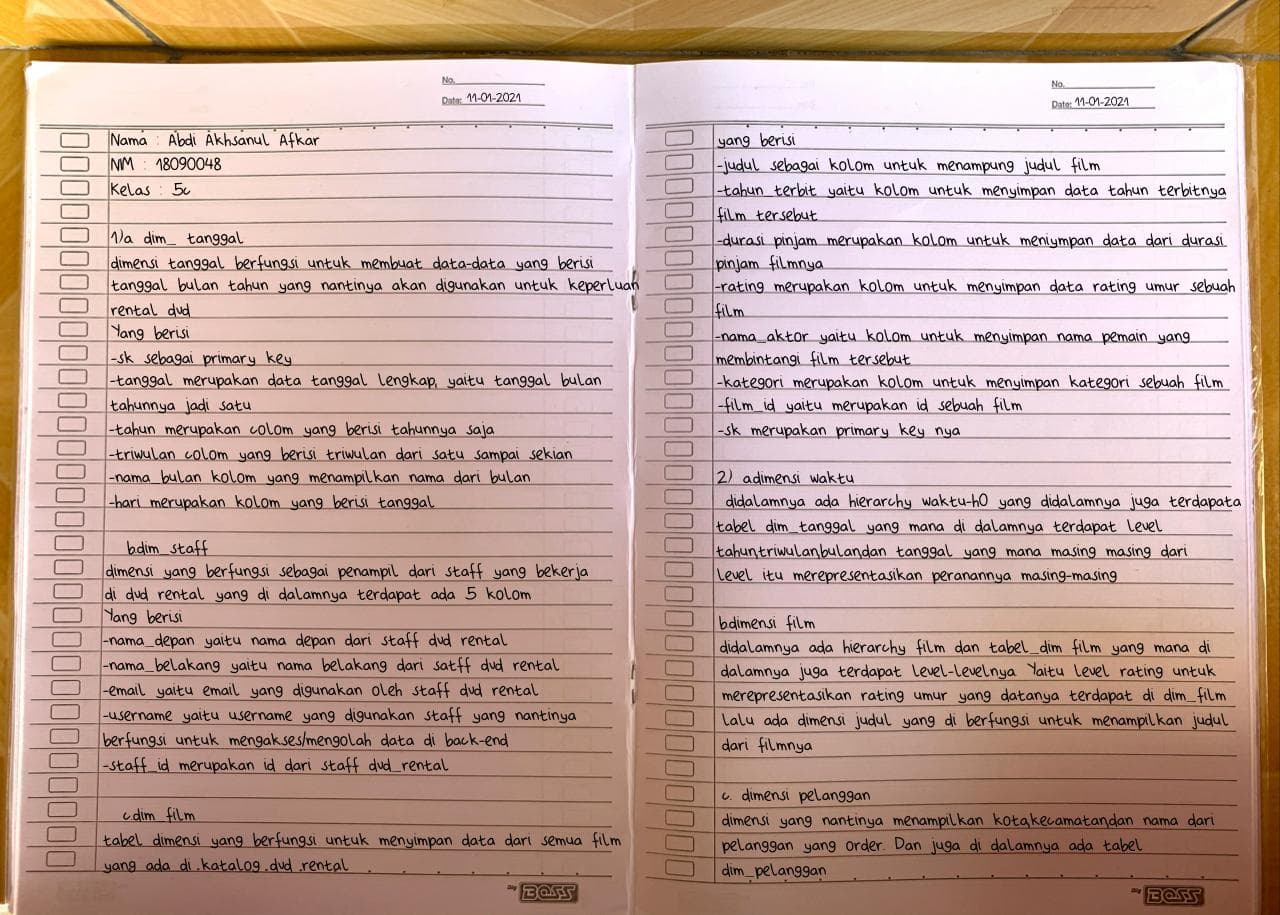 No.
Date: 11-01-2021
Nama : Abdi Akhsanul Afkar
NM : 18090048
Kelas : 5c
1)a dim_ tanggal
dimensi tanggal berfungsi untuk membuat data-data yang berisi
tanggal bulan tahun yang nantinya akan digunakan untuk keperluan
rental dvd
Yang berisi
-sk sebagai primary key
-tanggal merupakan data tanggal lengkap, yaitu tanggal bulan
tahunnya jadi satu
-tahun merupakan colom yang berisi tahunnya saja
-triwulan colom yang berisi triwulan dari satu sampai sekian
-nama_bulan kolom yang menampilkan nama dari bulan
-hari merupakan kolom yang berisi tanggal
b.dim_staff
dimensi yang berfungsi sebagai penampil dari staff yang bekerja
di dvd rental yang di dalamnya terdapat ada 5 kolom
Yang berisi
-nama_depan yaitu nama depan dari staff dvd rental
-nama_belakang yaitu nama belakang dari satff dvd rental
-email yaitu email yang digunakan oleh staff dvd rental
-username yaitu username yang digunakan staff yang nantinya
berfungsi untuk mengakses/mengolah data di back-end
-staff_id merupakan id dari staff dvd_rental
c.dim_film
tabel dimensi yang berfungsi untuk menyimpan data dari semua film
yang ada di katalog dvd rental
Big BOSS
No.
Date: 11-01-2021
yang berisi
-judul sebagai kolom untuk menampung judul film
-tahun_terbit yaitu kolom untuk menyimpan data tahun terbitnya
film tersebut
-durasi pinjam merupakan kolom untuk meniympan data dari durasi
pinjam filmnya
-rating merupakan kolom untuk menyimpan data rating umur sebuah
film
-nama_aktor yaitu kolom untuk menyimpan nama pemain yang
membintangi film tersebut
-kategori merupakan kolom untuk menyimpan kategori sebuah film
-film_id yaitu merupakan id sebuah film
-sk merupakan primary key nya
2) a.dimensi waktu
didalamnya ada hierarchy waktu-h0 yang didalamnya juga terdapata
tabel dim_tanggal yang mana di dalamnya terdapat level
tahun,triwulan,bulan,dan tanggal yang mana masing masing dari
level itu merepresentasikan peranannya masing-masing
b.dimensi film
didalamnya ada hierarchy film dan tabel_dim film yang mana di
dalamnya juga terdapat level-levelnya Yaitu level rating untuk
merepresentasikan rating umur yang datanya terdapat di dim_film
lalu ada dimensi judul yang di berfungsi untuk menampilkan judul
dari filmnya
c. dimensi pelanggan
dimensi yang nantinya menampilkan kota,kecamatan,dan nama dari
pelanggan yang order. Dan juga di dalamnya ada tabel
dim_pelanggan
Big BOSS